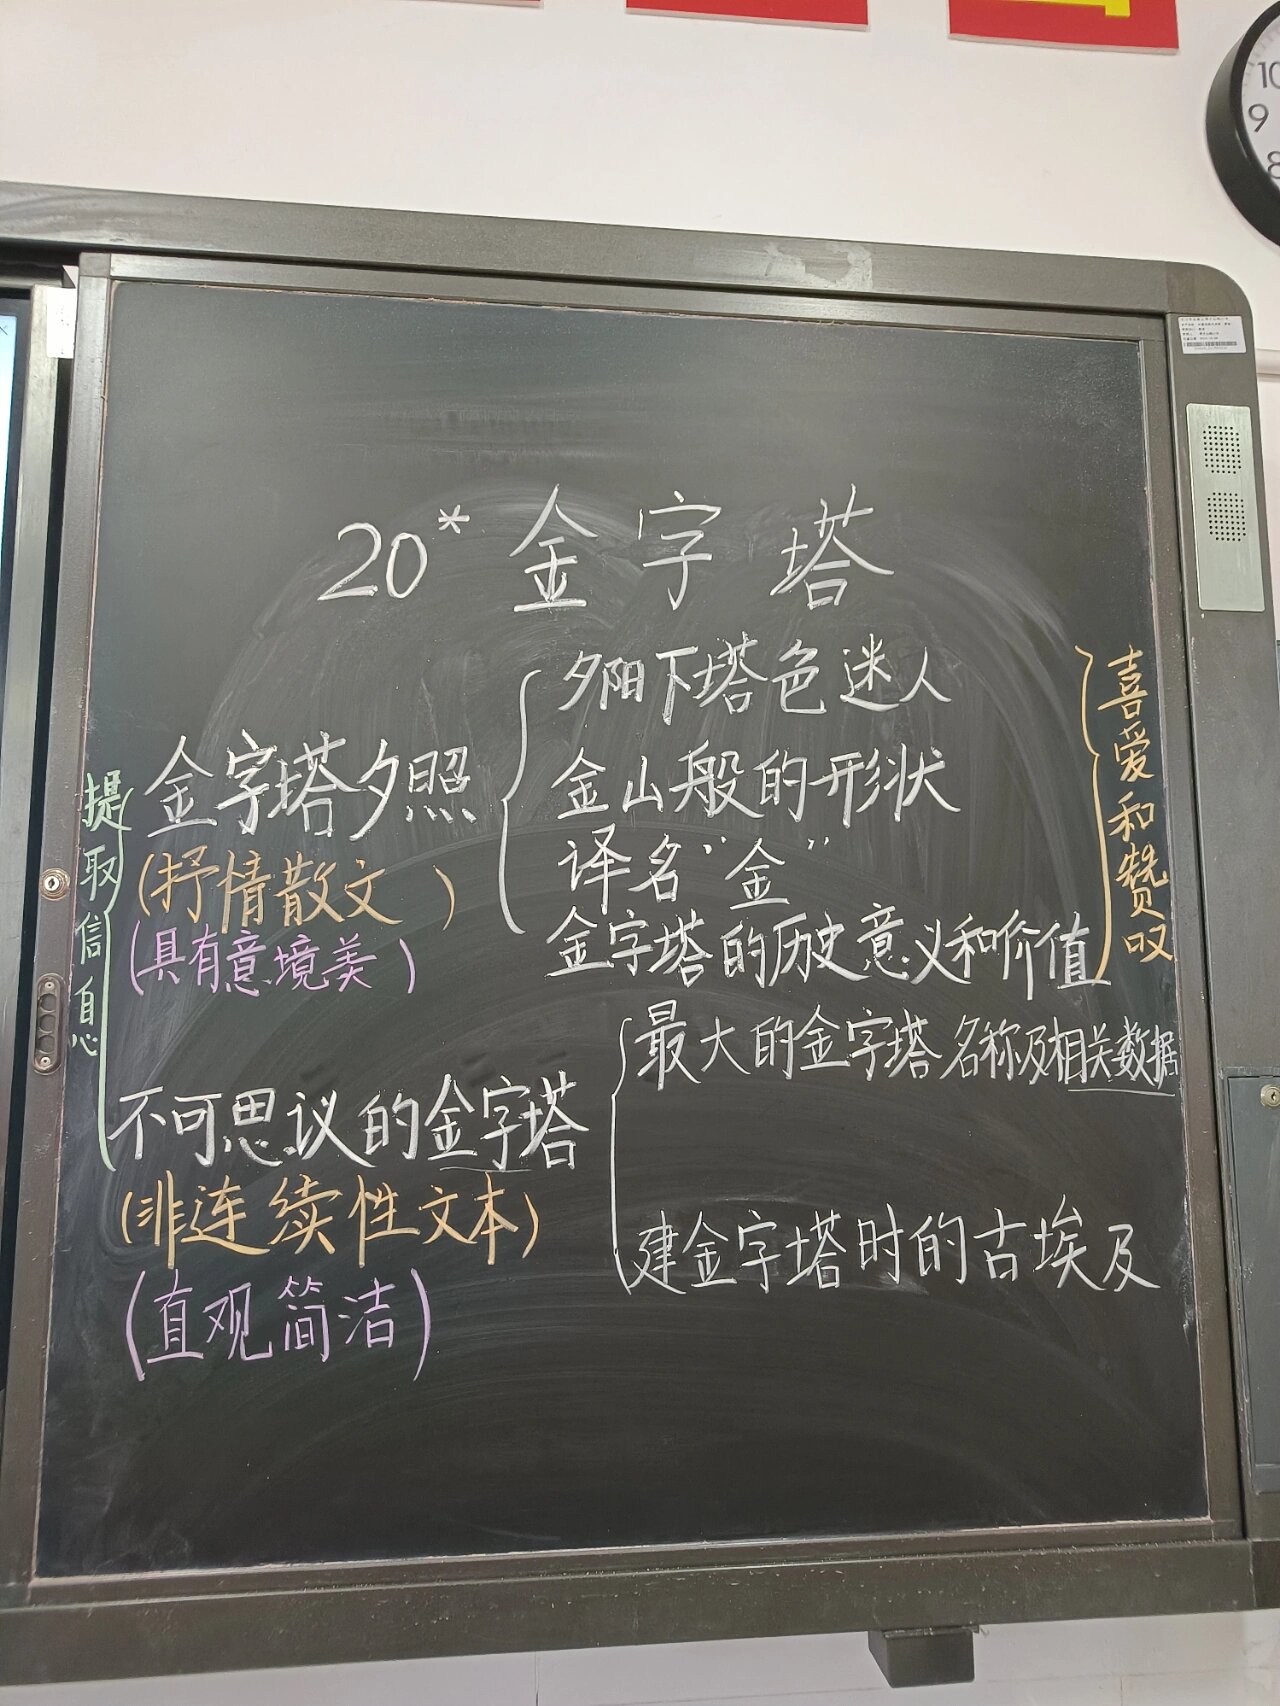 20* 金字塔
提取信息
金字塔夕照
(抒情散文)
(具有意境美)
夕阳下塔色迷人
金山般的形状
译名“金”
金字塔的历史意义和价值
喜爱和赞叹
不可思议的金字塔
(非连续性文本)
(直观简洁)
最大的金字塔名称及相关数据
建金字塔时的古埃及
10
9
8